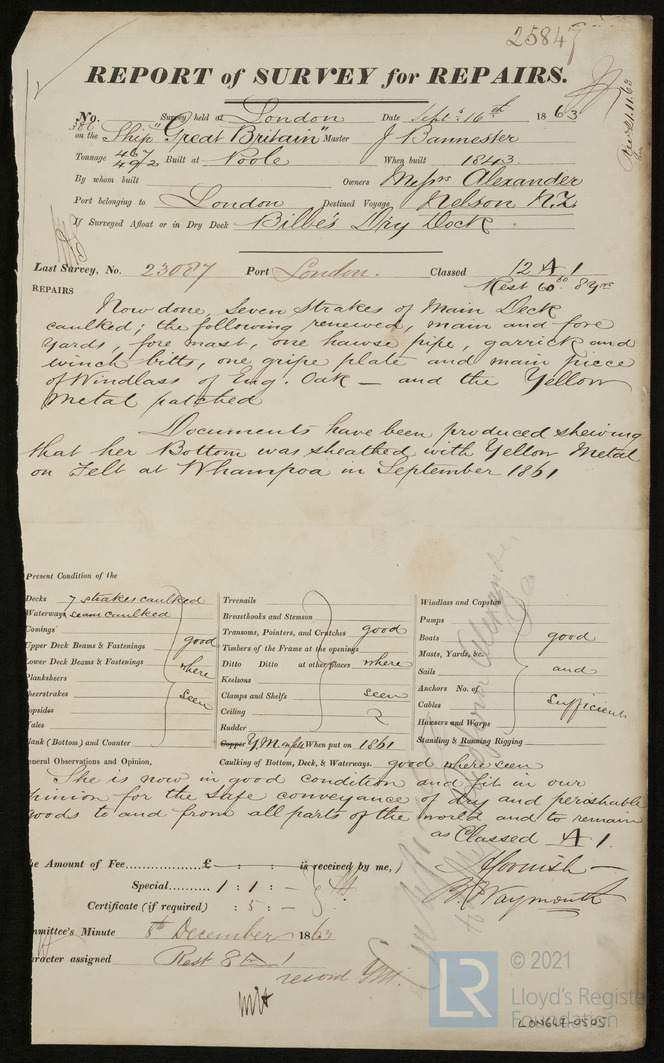 25847
REPORT of SURVEY for REPAIRS.
No. 386 Survey held at London Date Sept. 16th 1863
on the Ship "Great Britain" Master J Bannester
Tonnage 467 492 Built at Poole When built 1843.
By whom built Owners Messrs Alexander
Port belonging to London Destined Voyage Nelson N.Z.
If Surveyed Afloat or in Dry Dock Bilbe's Dry Dock
Last Survey, No. 23087 Port London. Classed 12 A 1
Rest 60 8 yrs
REPAIRS
Now done, Seven Strakes of Main Deck
caulked; the following renewed, main and fore
yards, fore mast, one hawse pipe, garrick and
winch bitts, one gripe plate and main piece
of Windlass of Eng. Oak — and the Yellow
Metal patched
Documents have been produced shewing
that her Bottom was sheathed with Yellow Metal
on Felt at Whampoa in September 1861
Present Condition of the
Decks 7 strakes caulked
Waterways seam caulked
Comings
Upper Deck Beams & Fastenings good
Lower Deck Beams & Fastenings where
Planksheers
heerstrakes seen
opsides
ales
lank (Bottom) and Counter
Treenails
Breasthooks and Stemson
Transoms, Pointers, and Crutches good
Timbers of the Frame at the openings
Ditto Ditto at other places where
Keelsons
Clamps and Shelfs seen
Ceiling
Rudder
Copper YM on felt When put on 1861
Caulking of Bottom, Deck, & Waterways. good where seen
Windlass and Capstan
Pumps
Boats good
Masts, Yards, &c.
Sails and
Anchors No. of
Cables sufficient
Hawsers and Warps
Standing & Running Rigging
eneral Observations and Opinion,
She is now in good condition and fit in our
pinion for the safe conveyance of dry and perishable
goods to and from all parts of the world and to remain
as Classed A 1.
he Amount of Fee £ : : is received by me,
Special 1 : 1 : —
Certificate (if required) : 5 : —
J Cornish
B. Waymouth
mmittee's Minute 8th December 1863
aracter assigned Rest 8 1
record YM.
© 2021
LR
Lloyd's Register
Foundation
LON647-0505